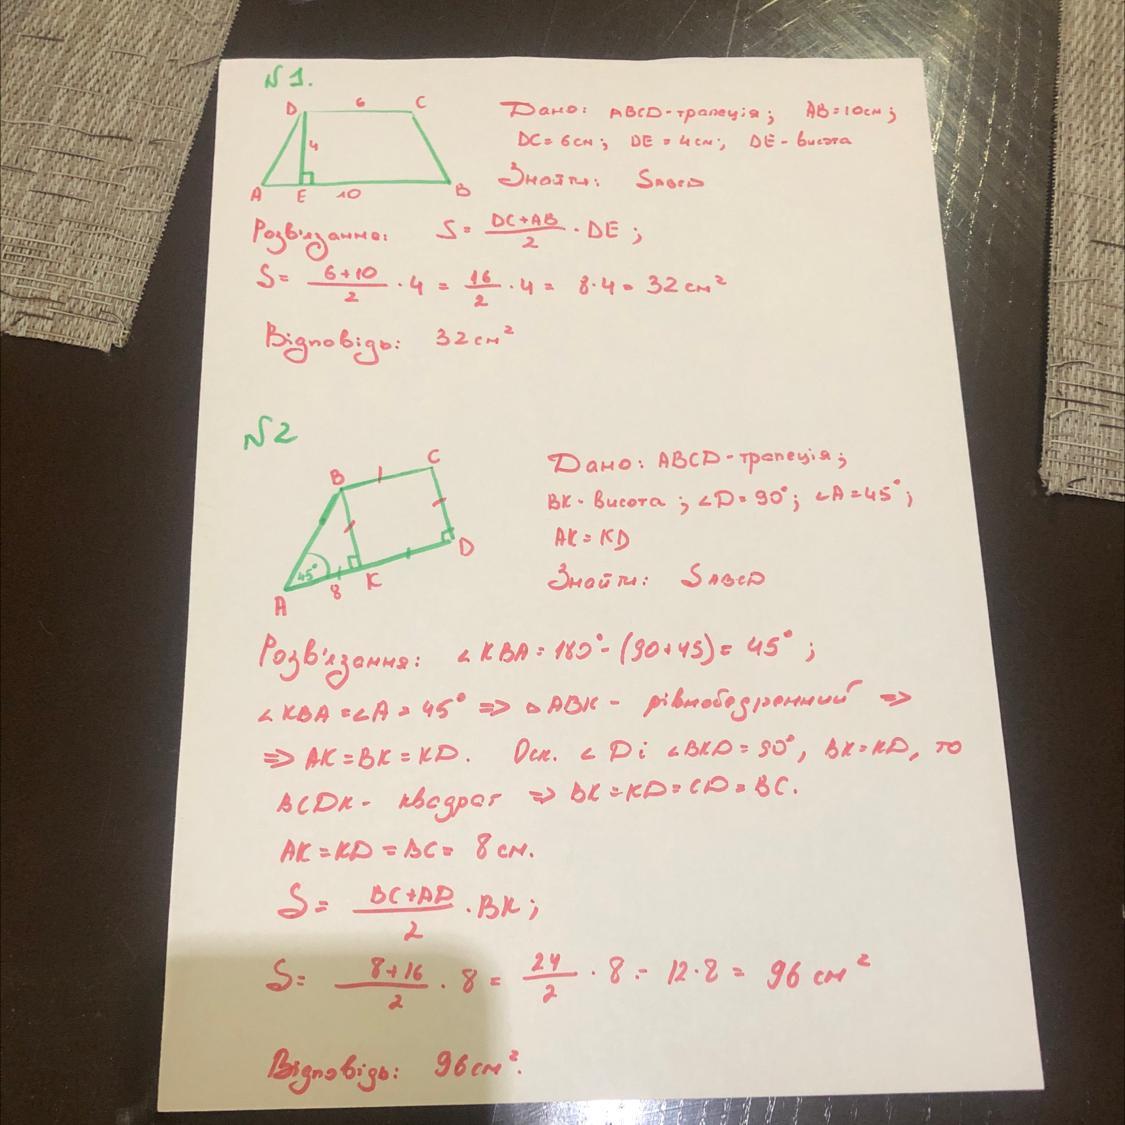 №1.
D 6 C
4
A E 10 B
Дано: ABCD-трапеція; AB=10см;
DC=6см; DE=4см; DE-висота
Знайти: SABCD
Розв'язання: S= DC+AB/2 · DE;
S= 6+10/2 · 4 = 16/2 · 4 = 8·4= 32см²
Відповідь: 32см²
№2
B C
45° 8 K D
A
Дано: ABCD-трапеція;
BK-висота; ∠D=90°; ∠A=45°;
AK=KD
Знайти: SABCD
Розв'язання: ∠KBA=180°-(90+45)=45°;
∠KBA=∠A=45° => △ABK- рівнобедренний =>
=> AK=BK=KD. Оск. ∠D і ∠BKD=90°, BK=KD, то
BCDK- квадрат => BK=KD=CD=BC.
AK=KD=BC= 8см.
S= BC+AD/2 · BK;
S= 8+16/2 · 8 = 24/2 · 8 = 12·8= 96см²
Відповідь: 96см².